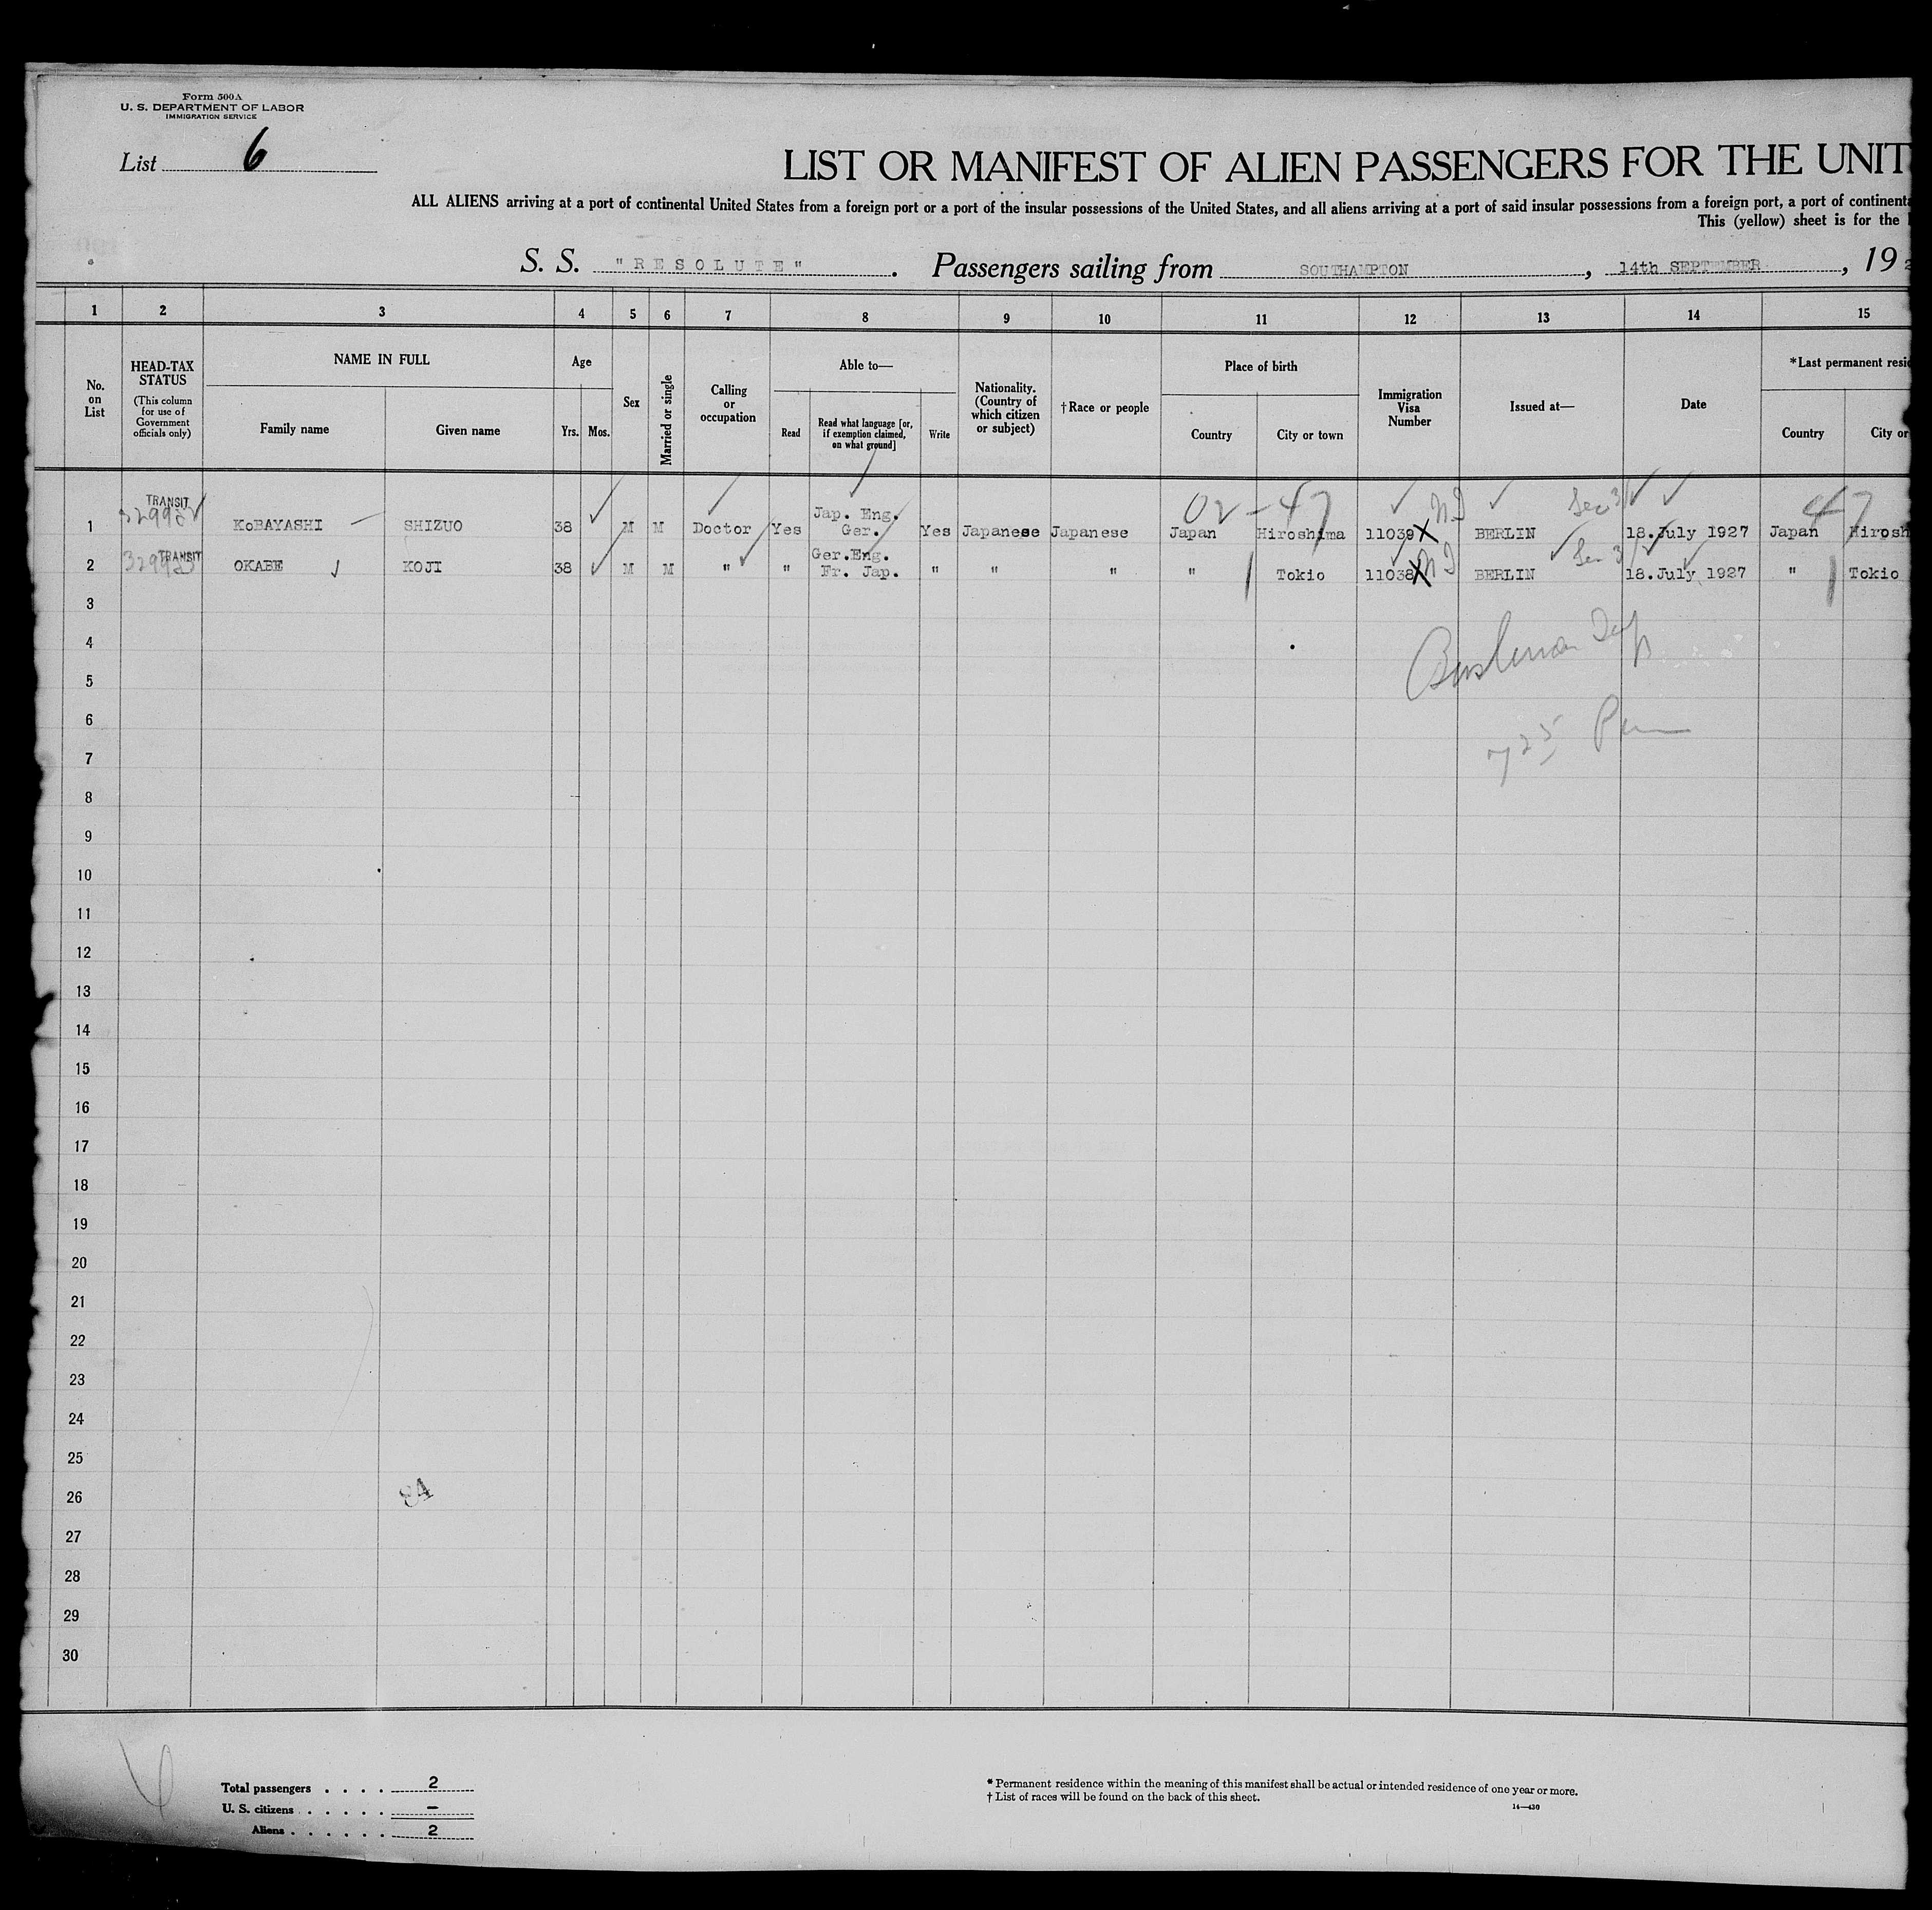 Form 500A
U. S. DEPARTMENT OF LABOR
IMMIGRATION SERVICE
List 6
LIST OR MANIFEST OF ALIEN PASSENGERS FOR THE UNIT
ALL ALIENS arriving at a port of continental United States from a foreign port or a port of the insular possessions of the United States, and all aliens arriving at a port of said insular possessions from a foreign port, a port of continent
This (yellow) sheet is for the
S. S. "RESOLUTE". Passengers sailing from SOUTHAMPTON, 14th SEPTEMBER, 19
1 2 3 4 5 6 7 8 9 10 11 12 13 14 15
No. on List
HEAD-TAX STATUS
(This column for use of Government officials only)
NAME IN FULL
Family name Given name
Age
Yrs. Mos.
Sex
Married or single
Calling or occupation
Able to—
Read
Read what language [or, if exemption claimed, on what ground]
Write
Nationality. (Country of which citizen or subject)
†Race or people
Place of birth
Country City or town
Immigration Visa Number
Issued at—
Date
*Last permanent resi
Country City or
02-47 47
1 TRANSIT KoBAYASHI SHIZUO 38 M M Doctor Yes Jap. Eng. Ger. Yes Japanese Japanese Japan Hiroshima 11039 BERLIN 18.July 1927 Japan Hirosh
2 TRANSIT OKABE KOJI 38 M M " " Ger.Eng. Fr. Jap. " " " " Tokio 11038 BERLIN 18.July 1927 " Tokio
3
4
5
6
7
8
9
10
11
12
13
14
15
16
17
18
19
20
21
22
23
24
25
26
27
28
29
30
84
Total passengers . . . . 2
U. S. citizens . . . . . . —
Aliens . . . . . . 2
* Permanent residence within the meaning of this manifest shall be actual or intended residence of one year or more.
† List of races will be found on the back of this sheet.
14—430